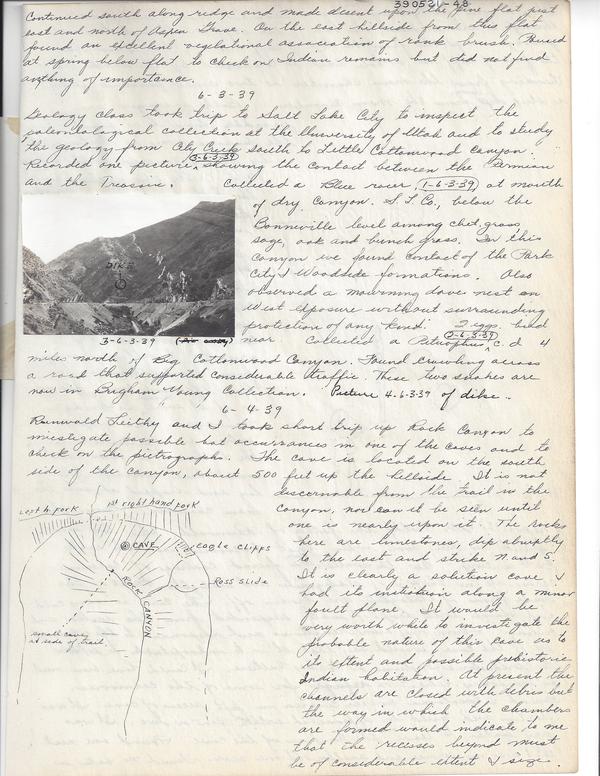 390521-48
Continued south along ridge and made descent upon the pine flat just
east and north of Aspen Grove. On the east hillside from this flat
found an excellent vegetational association of rank brush. Paused
at spring below flat to check on Indian remains but did not find
anything of importance.
6-3-39
Geology class took trip to Salt Lake City to inspect the
paleontological collection at the University of Utah and to study
the geology from City Creek south to Little Cottonwood Canyon.
Recorded one picture, 3-6-3-39 showing the contact between the Permian
and the Treassive. Collected a Blue racer, 1-6-3-39 at mouth
of dry Canyon. S. L. Co., below the
Bonneville level among cheat grass,
sage, oak and bunch grass. In this
Canyon we found contact of the Park
City & Woodside formations. Also
observed a mourning dove nest on
West Exposure without surrounding
protection of any kind. 2 eggs. bird
near Collected a Pituophis 2-6-3-39 c. d. 4
DIKE
3-6-3-39
miles north of Big Cottonwood Canyon. Found crawling across
a road that supported considerable traffic. These two snakes are
now in Brigham Young Collection. Picture 4-6-3-39 of dike.
6-4-39
Runwald Leethy and I took short trip up Rock Canyon to
investigate possible bat occurrances in one of the caves and to
check on the pictographs. The cave is located on the south
side of the canyon, about 500 feet up the hillside. It is not
discernable from the trail in the
canyon, nor can it be seen until
one is nearly upon it. The rocks
here are limestones, dip abruptly
to the east and strike N. and S.
It is clearly a solution cave &
had its institution along a minor
fault plane. It would be
very worth while to investigate the
probable nature of this cave as to
its extent and possible prehistoric
Indian habitation. At present the
channels are closed with debris but
the way in which the chambers
are formed would indicate to me
that the recesses beyond must
be of considerable extent & size.
Left h. fork
1st right hand fork
CAVE
eagle cliffs
Ross Slide
ROCK CANYON
small cave
at side of trail